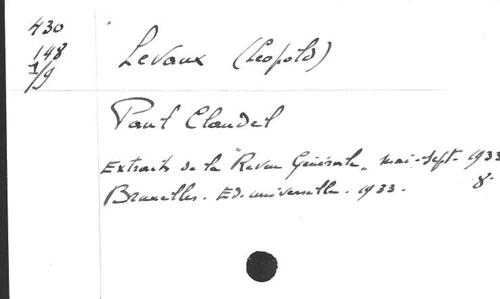 430
148
1/9
Levaux (Léopold)
Paul Claudel
Extraits de la "Revue Générale" mai-sept. 1933
Bruxelles. Ed. universelle. 1933. 8°